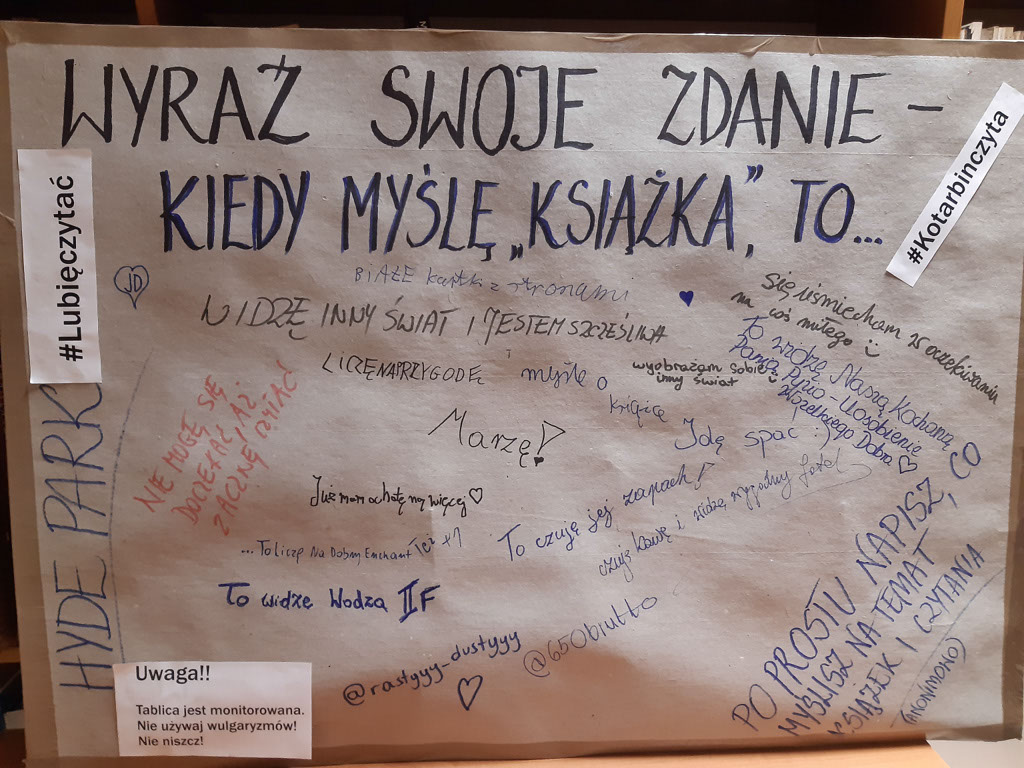 WYRAŹ SWOJE ZDANIE –
KIEDY MYŚLĘ „KSIĄŻKA”, TO...
#Lubięczytać
#Kotarbinczyta
JD
BIAŁE kartki z stronami
WIDZĘ INNY ŚWIAT I JESTEM SZCZĘŚLIWA
LICZĘ NA PRZYGODĘ
myślę o
księżcę
wyobrażam sobie
inny świat
Się uśmiecham w oczekiwaniu
na coś miłego
To widzę Naszą Kochaną
Panią Pyzio - Uosobienie
Wszelkiego Dobra
NIE MOGĘ SIĘ
DOCZEKAĆ, AŻ
ZACZNĘ CZYTAĆ!
Marzę!
Idę spać :)
Już mam ochotę na więcej
To czuję jej zapach!
czuję kawę i widzę wygodny fotel
...To liczę Na Dobry Enchant
To widzę Wodza IIF
@rastyyy_dustyyy
@650biutto
HYDE PARK
PO PROSTU NAPISZ, CO
MYŚLISZ NA TEMAT
KSIĄŻEK I CZYTANIA
(ANONIMOWO)
Uwaga!!
Tablica jest monitorowana.
Nie używaj wulgaryzmów!
Nie niszcz!